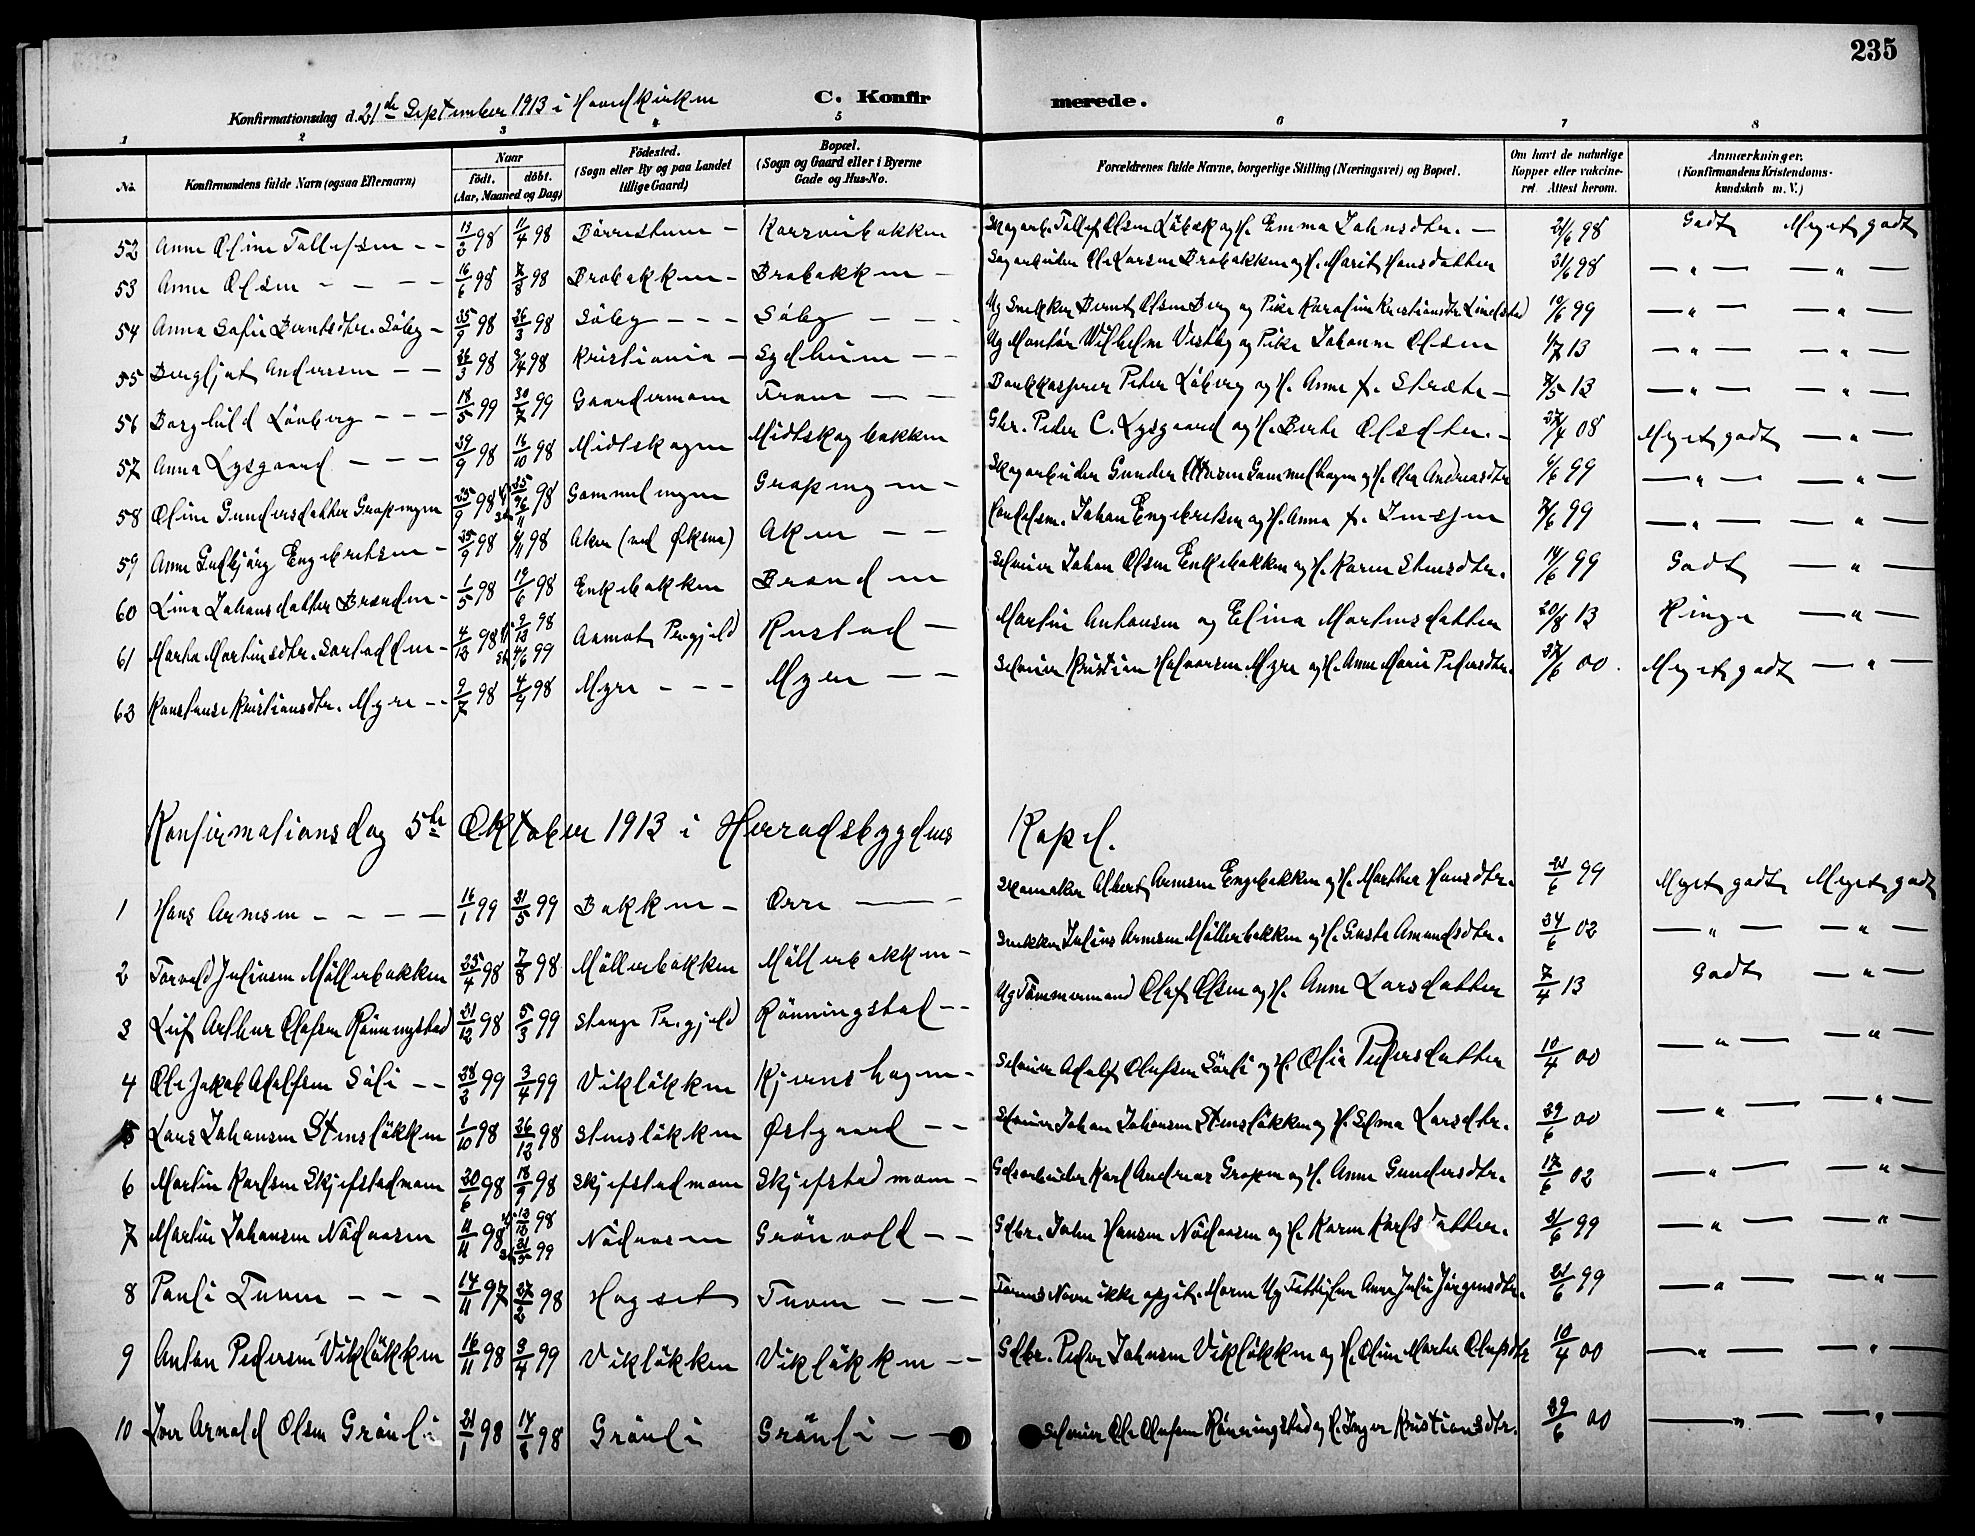 235
C. Konfirmerede.
Konfirmationsdag d. 21de September 1913 i Hovedkirken
1 2 3 4 5 6 7 8
No. Konfirmandens fulde Navn (ogsaa Efternavn) Naar født. døbt. (Aar, Maaned og Dag) Födested. (Sogn eller By og paa Landet tillige Gaard) Bopæl. (Sogn og Gaard eller i Byerne Gade og Hus-No. Forældrenes fulde Navne, borgerlige Stilling (Næringsvei) og Bopæl. Om havt de naturlige Kopper eller vakcineret. Attest herom. Anmærkninger. (Konfirmandens Kristendomskundskab m. V.)
52 Anne Oline Tollefsen - - 13/3 98 11/4 98 Börrestuen - Skogarb. Tollef Olsen Löbak og H. Emma Johnsdtr. - 21/6 98 Godt Meget godt
53 Anne Olsen - - - - 16/6 98 7/8 98 Brobakken - Brobakken - Sagarbeider Ole Larsen Brobakken og H. Marit Hansdatter 21/6 98 - " - - " -
54 Anna Sofie Berntsdtr. Söby - 25/9 98 26/3 98 Söby - - - Söby - - - Ug Snekker Bernt Olsen Berg og Pike Karoline Kristiansdtr. 19/6 99 - " - - " -
55 Bergljot Andersen - - 26/3 98 98 Kristiania - Sydhuen - - Ug Montör Vilhelm Vestby og Pike Johanne Olsen 4/7 13 - " - - " -
56 Borghild Löberg - - - 18/5 99 30/7 99 Gaardermoen Fram - - Bankkasserer Peter Löberg og H. Anne f. Stræte - 7/5 13 - " - - " -
57 Anna Lysgaard - - - 29/9 98 16/10 98 Midtskogen Midtskogbakken Gbr. Peder C. Lysgaard og H. Berte Olsdtr. - 27/4 08 Meget godt - " -
58 Oline Gundersdatter Grapengen 25/9 98 98 Gammelengen Grapengen - Skogarbeider Gunder Gammelhagen og H. Olea Andreasdtr 99 - " - - " -
59 Anne Gudbjörg Engebretsen - 25/9 98 6/11 98 Aken (ved Öksna) Aken - - Handelsm. Johan Engebretsen og H. Anna f. Imsjen 99 - " - - " -
60 Lina Johansdatter Brænden - 1/5 98 19/6 98 Enkebakken Brænden Selveier Johan Olsen Enkebakken og H. Karen Stensdtr. 14/6 99 Godt - " -
61 Marta Martinsdtr. - 4/12 98 98 99 Aamot Prgjeld Rustad - Martin Antonsen og Elina Martinsdatter 20/8 13 Ringe - " -
62 Konstanse Kristiansdtr. Myre - - 9/7 98 4/9 98 Myre - - - Myen - - Selveier Kristian Halvorsen Myre og H. Anne Marie Pedersdtr. 27/6 00. Meget godt - " -
Konfirmationsdag 5te Oktober 1913 i Herradsbygdens Kapel.
1 Hans Arnesen - - - - 16/1 99 21/5 99 Bakken - Orre - Skomaker Albert Arnesen Engebakken og H. Marthea Hansdtr. 21/6 99 Meget godt Meget godt
2 Torvald Juliusen Möllerbakken 25/4 98 7/8 98 Möllerbakken Möllerbakken - Snekker Julius Arnesen Möllerbakken og H. Gusta Amundsdtr. 24/6 02 - " - - " -
3 Leif Arthur Olafsen Rönningstad 31/12 98 5/3 99 Stange Pr.gjeld Rönningstad - - Ug Tömmermand Olaf Olsen og H. Anne Larsdatter 7/4 13 Godt - " -
4 Ole Jakob Adolfsen Söli - - 28/2 99 3/4 99 Viklökken Kjernshagen - Selveier Adolf Olufsen Sörli og H. Olea Pedersdatter 10/4 00 - " - - " -
5 Lars Johansen Stenslökken 1/10 98 26/12 98 Stenslökken Östgaard - - Selveier Johan Johansen Stenslökken og H. Selma Larsdtr. 29/6 00 - " - - " -
6 Martin Karlsen Skjefstadmoen 30/6 98 18/9 98 Skjefstadmoen Skjefstadmoen - Gdsarbeider Karl Andreas Grapen og H. Anne Gundersdtr. 17/6 02 - " - - " -
7 Martin Johansen Nödaasen 11/11 98 98 99 Nödaasen Grönvold - - Gdbr. Johan Hansen Nödaasen og H. Karen Karlsdatter. 21/6 99 - " - - " -
8 Pauli Tuven - - - 14/11 97 27/2 98 Hogset Tuven - - - Farens Navn ikke opgit. Moren Ug Anne Julie Jörgensdtr. 21/6 99 - " - - " -
9 Anton Pedersen Viklökken 16/11 98 3/4 99 Viklökken Viklökken - - Gdbr. Peder Johnsen Viklökken og H. Oline Marthea Olufsdtr 10/4 00 - " - - " -
10 Iver Arnold Olsen Grönli 21/1 98 14/8 98 Grönli Grönli - - Selveier Ole Olufsen Rönningstad og H. Inger Kristiansdtr. 29/6 00 - " - - " -